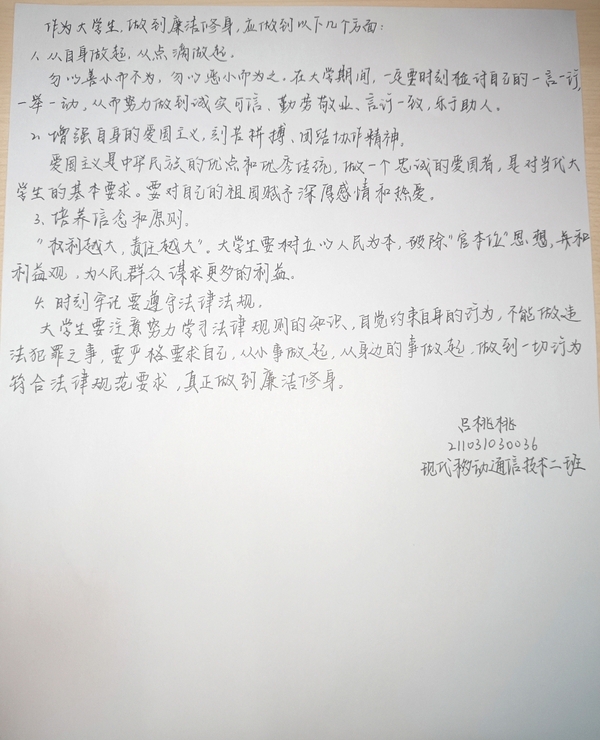 作为大学生,做到廉洁修身,应做到以下几个方面:
1、从自身做起,从点滴做起。
勿以善小而不为,勿以恶小而为之。在大学期间,一定要时刻检讨自己的一言一行,
一举一动,从而努力做到诚实可信、勤劳敬业、言行一致,乐于助人。
2、增强自身的爱国主义,刻苦拼搏、团结协作精神。
爱国主义是中华民族的优点和优秀传统,做一个忠诚的爱国者,是对当代大
学生的基本要求。要对自己的祖国赋予深厚感情和热爱。
3、培养信念和原则。
“权利越大,责任越大”。大学生要树立以人民为本,破除“官本位”思想,
利益观,为人民群众谋求更多的利益。
4、时刻牢记要遵守法律法规。
大学生要注意努力学习法律规则的知识、自觉约束自身的行为,不能做违
法犯罪之事,要严格要求自己,从小事做起,从身边的事做起,做到一切行为
符合法律规范要求,真正做到廉洁修身。
吕桃桃
211031030036
现代移动通信技术二班